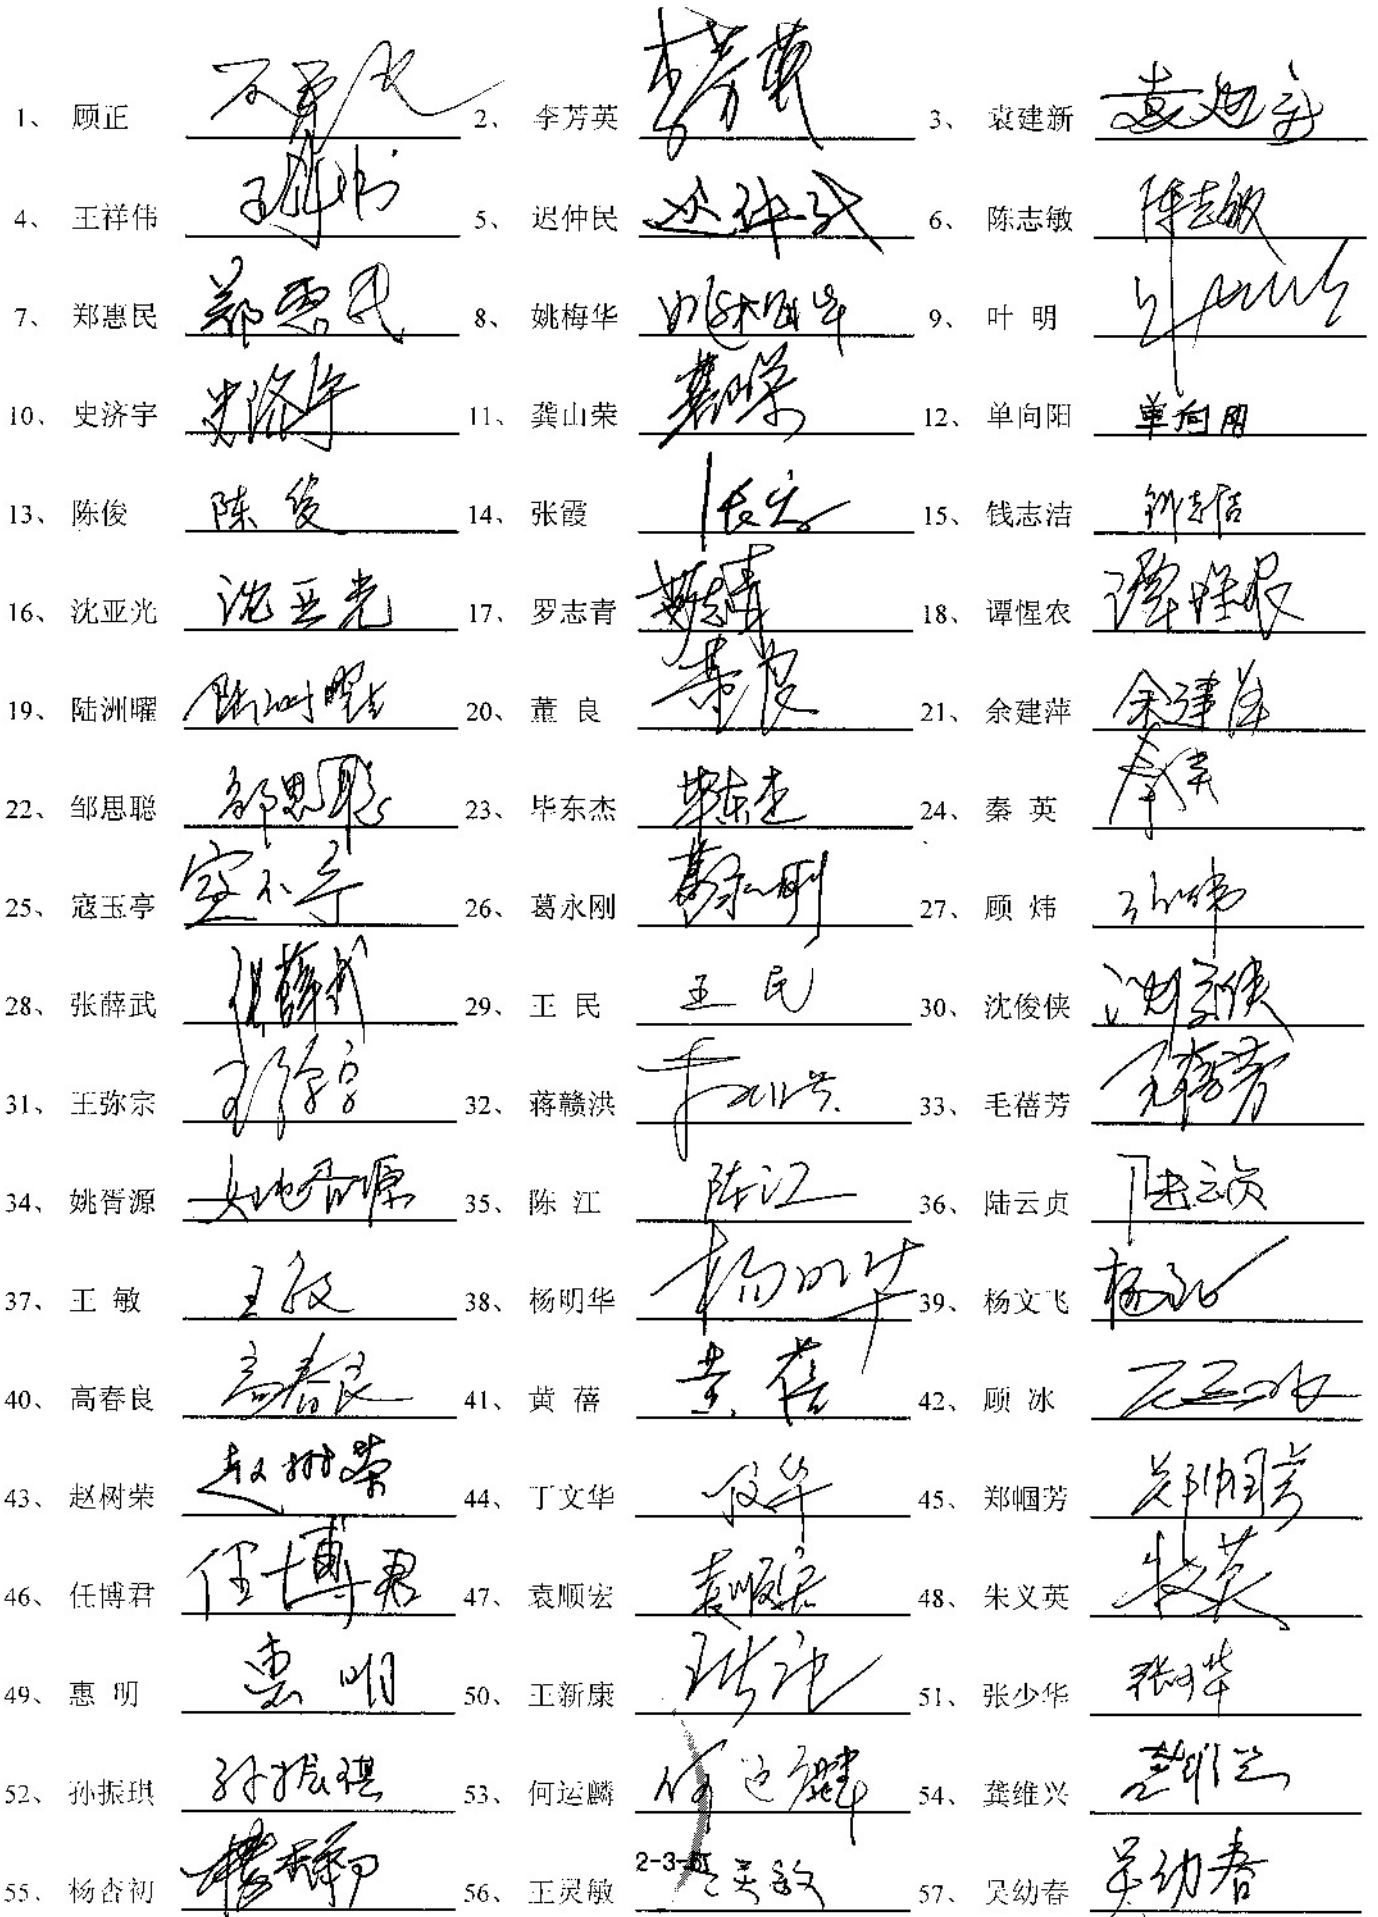 1、 顾正 2、 李芳英 李芳英 3、 袁建新 袁建新
4、 王祥伟 王祥伟 5、 迟仲民 迟仲民 6、 陈志敏 陈志敏
7、 郑惠民 郑惠民 8、 姚梅华 姚梅华 9、 叶 明 叶明
10、 史济宇 史济宇 11、 龚山荣 龚山荣 12、 单向阳 单向阳
13、 陈俊 陈俊 14、 张霞 张霞 15、 钱志洁 钱志洁
16、 沈亚光 沈亚光 17、 罗志青 18、 谭惺农 谭惺农
19、 陆洲曜 陆洲曜 20、 董 良 董良 21、 余建萍 余建萍
22、 邹思聪 邹思聪 23、 毕东杰 毕东杰 24、 秦 英 秦英
25、 寇玉亭 寇玉亭 26、 葛永刚 葛永刚 27、 顾 炜
28、 张薛武 张薛武 29、 王 民 王民 30、 沈俊侠 沈俊侠
31、 王弥宗 王弥宗 32、 蒋赣洪 33、 毛蓓芳 毛蓓芳
34、 姚胥源 姚胥源 35、 陈 江 陈江 36、 陆云贞 陆云贞
37、 王 敏 王敏 38、 杨明华 杨明华 39、 杨文飞
40、 高春良 高春良 41、 黄 蓓 黄蓓 42、 顾 冰
43、 赵树荣 赵树荣 44、 丁文华 45、 郑帼芳 郑帼芳
46、 任博君 任博君 47、 袁顺宏 袁顺宏 48、 朱义英 朱义英
49、 惠 明 惠明 50、 王新康 51、 张少华 张少华
52、 孙振琪 孙振琪 53、 何运麟 何运麟 54、 龚维兴 龚维兴
55、 杨杏初 56、 王灵敏 2-3- 王灵敏 57、 吴幼春 吴幼春